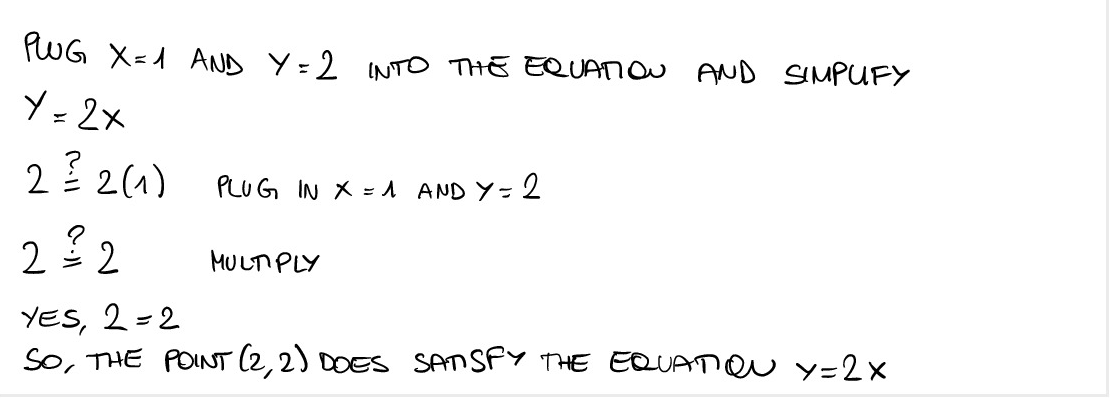 PLUG X=1 AND Y=2 INTO THE EQUATION AND SIMPLIFY
Y=2X
2 ≟ 2(1) PLUG IN X=1 AND Y=2
2 ≟ 2 MULTIPLY
YES, 2=2
SO, THE POINT (2,2) DOES SATISFY THE EQUATION Y=2X